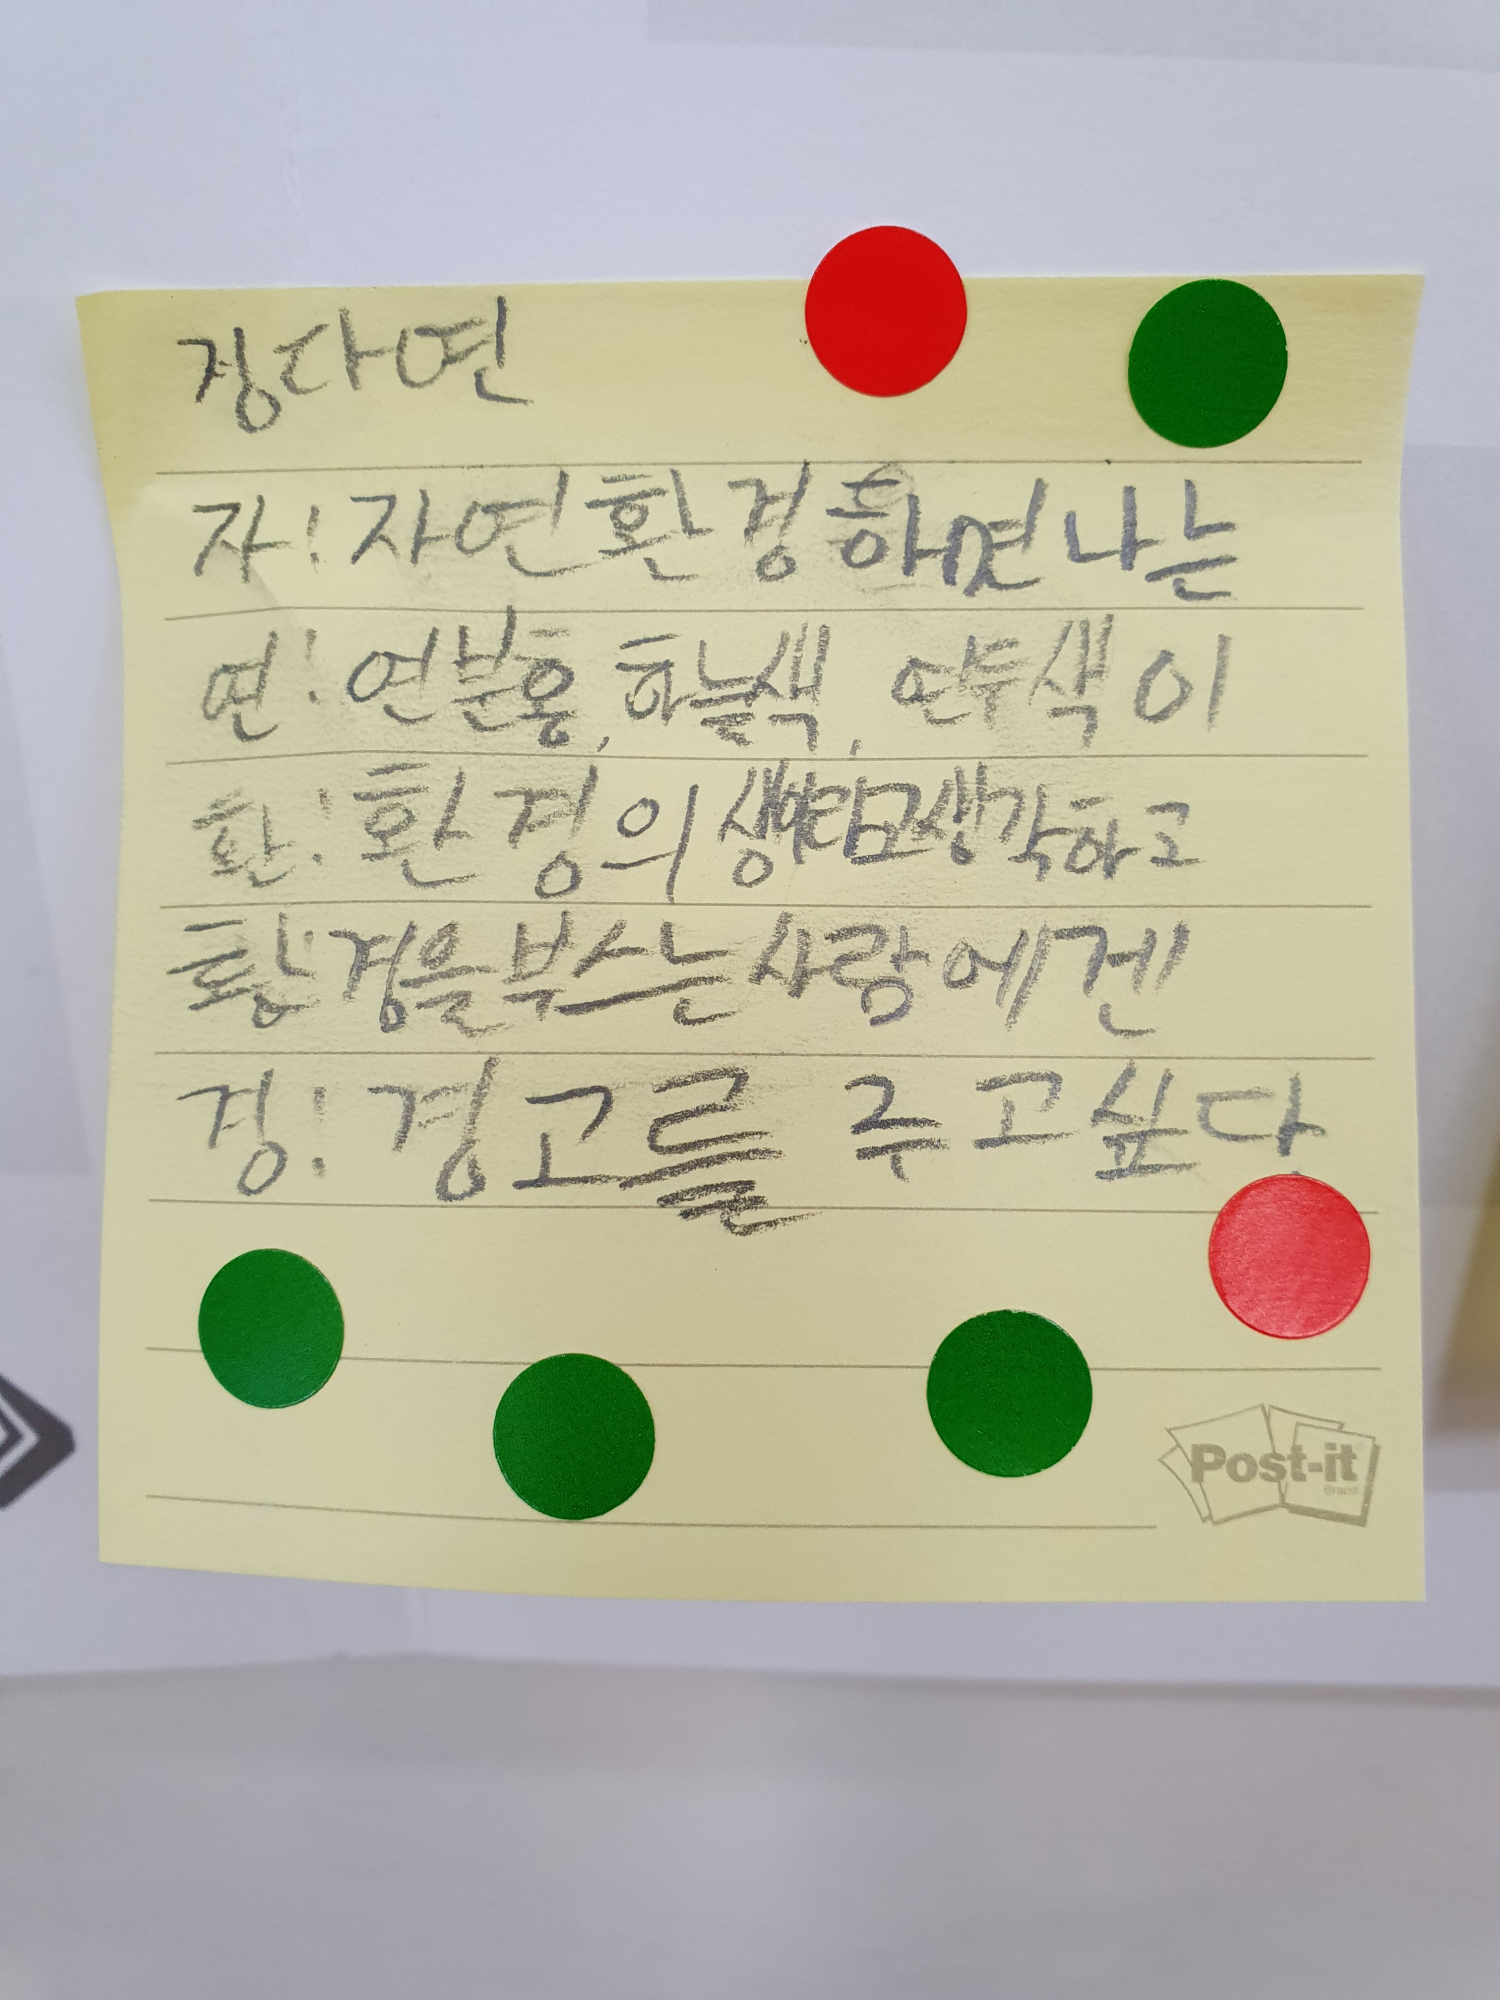 정다연
자: 자연환경 하면 나는
연: 연분홍, 하늘색, 연두색이
환: 환경의 생각하고
환경을 부스는 사람에겐
경: 경고를 주고싶다
Post-it
Brand